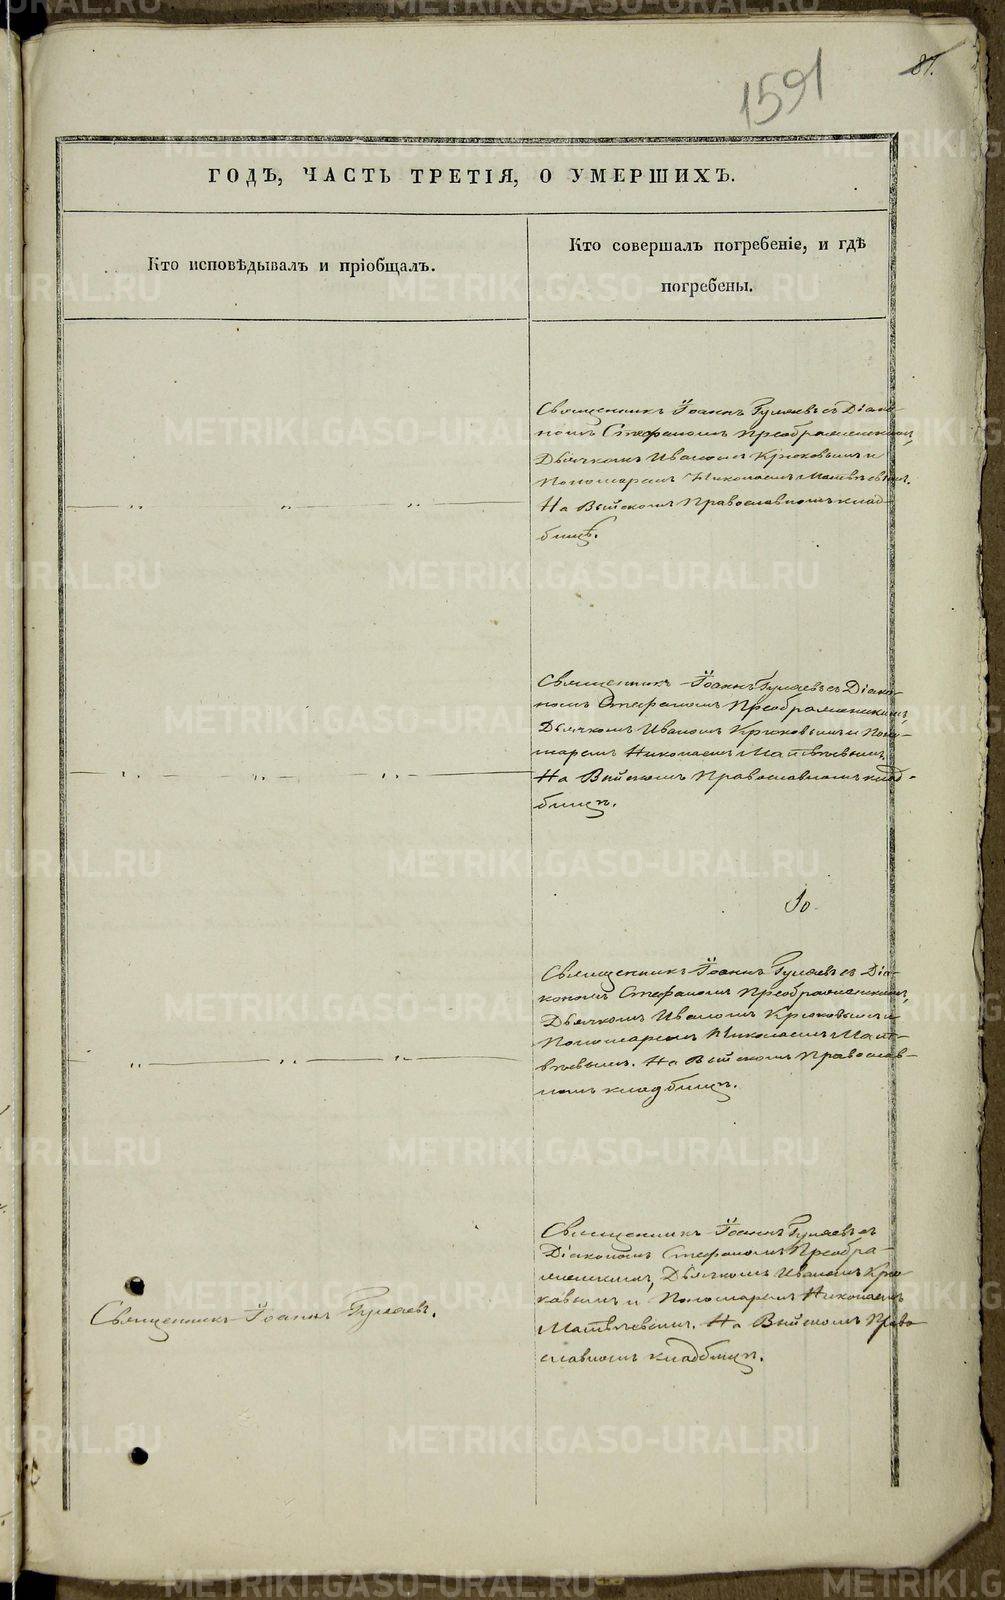 1591
81.
ГОДЪ, ЧАСТЬ ТРЕТІЯ, О УМЕРШИХЪ.
Кто исповѣдывалъ и пріобщалъ.
Кто совершалъ погребеніе, и гдѣ
погребены.
Священникъ Іоаннъ Гуляевъ съ Діако-
номъ Стефаномъ Преображенскимъ,
Дьячкомъ Иваномъ Крюковымъ и
Пономаремъ Николаемъ Матвѣевымъ.
На Выйскомъ Православномъ клад-
бищѣ.
Священникъ Іоаннъ Гуляевъ съ Діако-
номъ Стефаномъ Преображенскимъ,
Дьячкомъ Иваномъ Крюковымъ и Поно-
маремъ Николаемъ Матвѣевымъ.
На Выйскомъ Православномъ клад-
бищѣ.
Священникъ Іоаннъ Гуляевъ съ Діа-
кономъ Стефаномъ Преображенскимъ,
Дьячкомъ Иваномъ Крюковымъ и
Пономаремъ Николаемъ Мат-
вѣевымъ. На Выйскомъ Православ-
номъ кладбищѣ.
Священникъ Іоаннъ Гуляевъ.
Священникъ Іоаннъ Гуляевъ съ
Діакономъ Стефаномъ Преобра-
женскимъ, Дьячкомъ Иваномъ Крю
ковымъ и Пономаремъ Николаемъ
Матвѣевымъ. На Выйскомъ Право
славномъ кладбищѣ.
METRIKI.GASO-URAL.RU